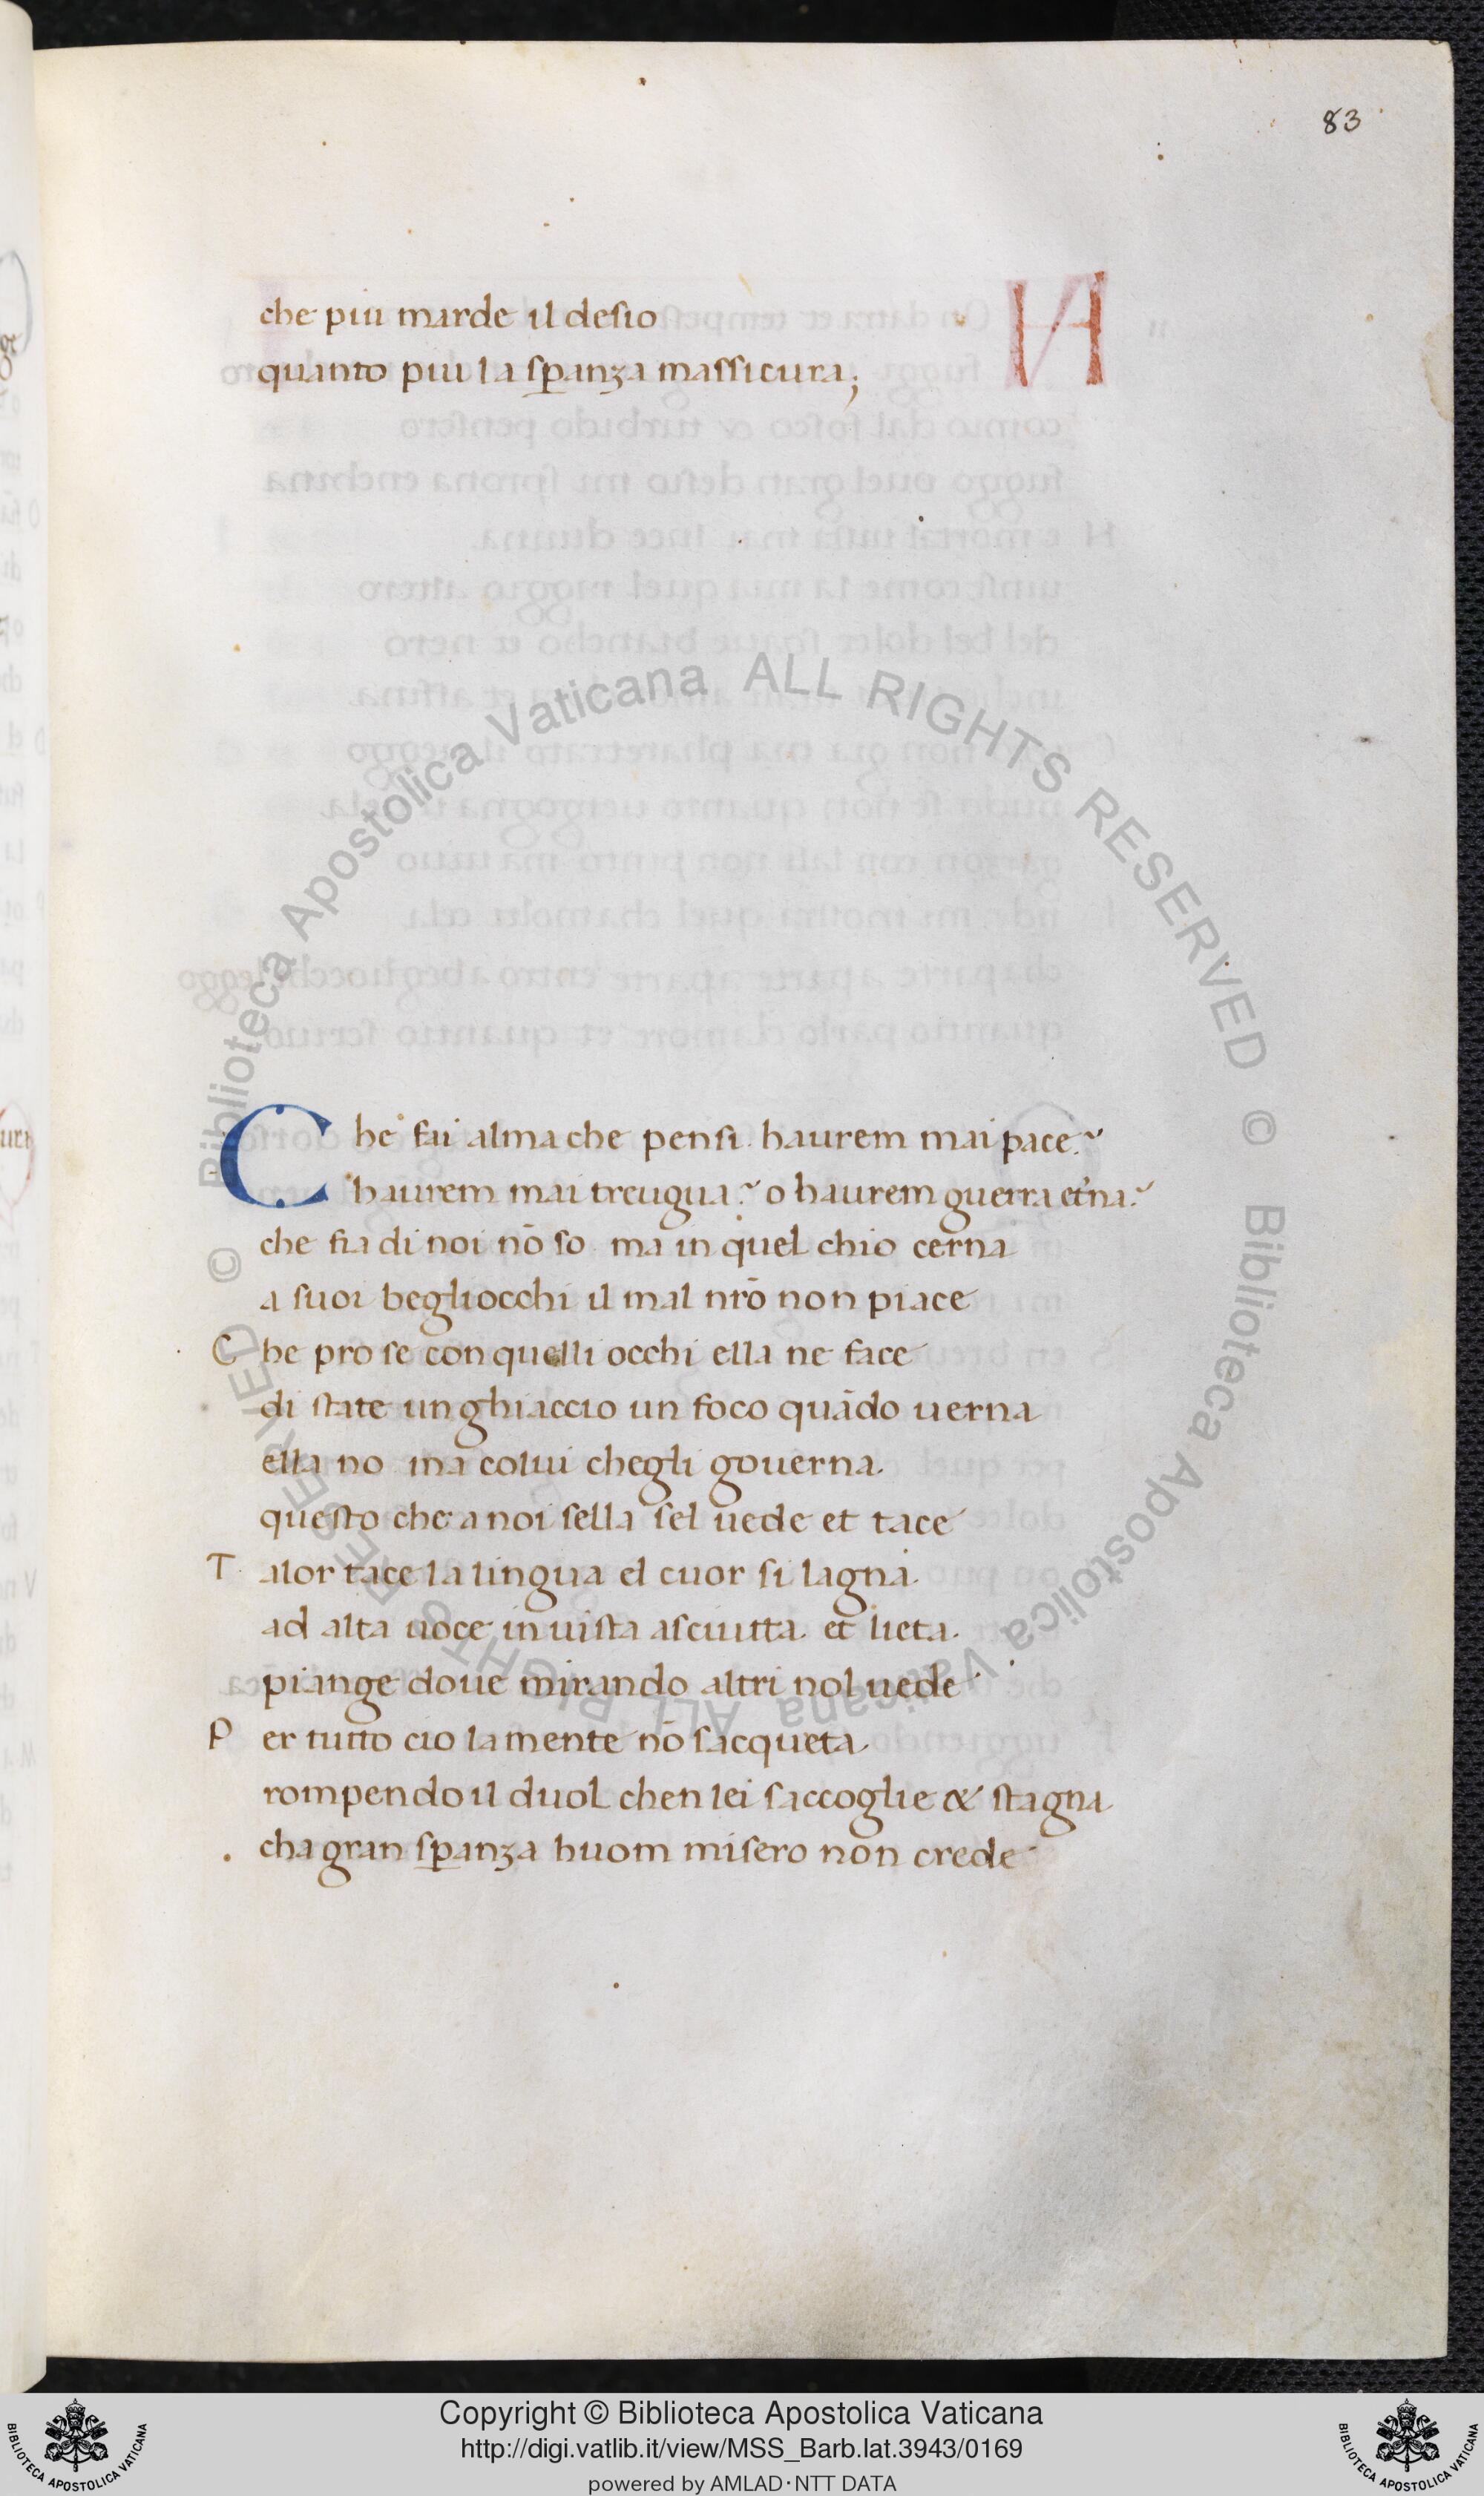 83
che piu marde il desio
quanto piu la sp̱anza massicura;
Che fai alma che pensi. haurem mai pace?
haurem mai treugua? o haurem guerra et'na?
che fia di noi nō so. ma in quel chio cerna
a suoi begliocchi il mal nr̄o non piace
Che pro se con quelli occhi ella ne face
di state un ghiaccio un foco quādo uerna
ella no ma colui chegli gouerna.
questo che a noi sella sel uede et tace
Talor tace la lingua el cuor si lagna.
ad alta uoce in uista asciutta. et lieta.
piange doue mirando altri nol uede
Per tutto cio la mente nō sacqueta.
rompendo il duol chen lei saccoglie & stagna
cha gran sp̱anza huom misero non crede
© Biblioteca Apostolica Vaticana ALL RIGHTS RESERVED
© Biblioteca Apostolica Vaticana ALL RIGHTS RESERVED
Copyright © Biblioteca Apostolica Vaticana
http://digi.vatlib.it/view/MSS_Barb.lat.3943/0169
powered by AMLAD·NTT DATA
BIBLIOTECA APOSTOLICA VATICANA
BIBLIOTECA APOSTOLICA VATICANA